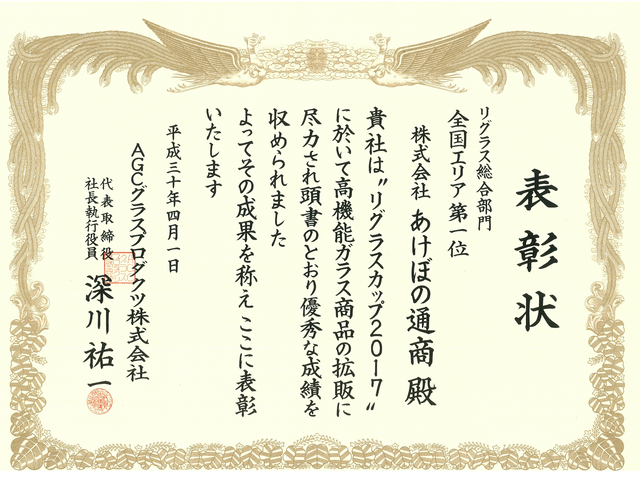 表彰状
リグラス総合部門
全国エリア第一位
株式会社 あけぼの通商 殿
貴社は〝リグラスカップ2017〟
に於いて高機能ガラス商品の拡販に
尽力され頭書のとおり優秀な成績を
収められました
よってその成果を称え ここに表彰
いたします
平成三十年四月一日
AGCグラスプロダクツ株式会社
代表取締役
社長執行役員
深川祐一